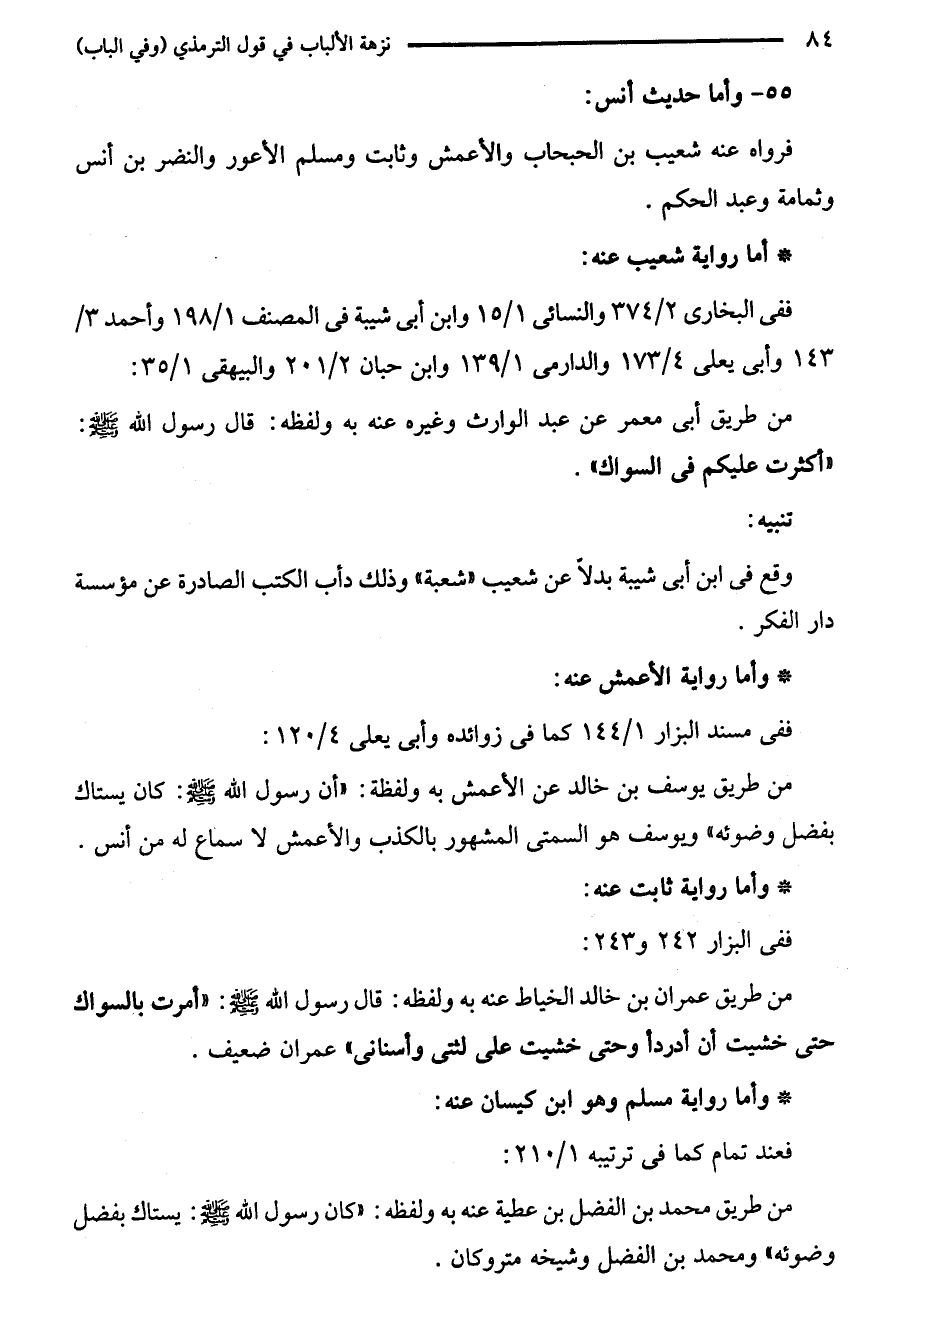 ٨٤ نزهة الألباب في قول الترمذي (وفي الباب)
٥٥- وأما حديث أنس:
فرواه عنه شعيب بن الحبحاب والأعمش وثابت ومسلم الأعور والنضر بن أنس
وثمامة وعبد الحكم .
* أما رواية شعيب عنه:
ففى البخارى ٣٧٤/٢ والنسائى ١٥/١ وابن أبى شيبة فى المصنف ١٩٨/١ وأحمد ٣/
١٤٣ وأبى يعلى ١٧٣/٤ والدارمى ١٣٩/١ وابن حبان ٢٠١/٢ والبيهقى ٣٥/١:
من طريق أبى معمر عن عبد الوارث وغيره عنه به ولفظه: قال رسول الله ﷺ:
«أكثرت عليكم فى السواك» .
تنبيه:
وقع فى ابن أبى شيبة بدلاً عن شعيب «شعبة» وذلك دأب الكتب الصادرة عن مؤسسة
دار الفكر .
* وأما رواية الأعمش عنه:
ففى مسند البزار ١٤٤/١ كما فى زوائده وأبى يعلى ١٢٠/٤:
من طريق يوسف بن خالد عن الأعمش به ولفظة: «أن رسول الله ﷺ: كان يستاك
بفضل وضوئه» ويوسف هو السمتى المشهور بالكذب والأعمش لا سماع له من أنس .
* وأما رواية ثابت عنه:
ففى البزار ٢٤٢ و٢٤٣:
من طريق عمران بن خالد الخياط عنه به ولفظه: قال رسول الله ﷺ: «أمرت بالسواك
حتى خشيت أن أدردأ وحتى خشيت على لثتى وأسنانى» عمران ضعيف .
* وأما رواية مسلم وهو ابن كيسان عنه:
فعند تمام كما فى ترتيبه ٢١٠/١:
من طريق محمد بن الفضل بن عطية عنه به ولفظه: «كان رسول الله ﷺ: يستاك بفضل
وضوئه» ومحمد بن الفضل وشيخه متروكان .